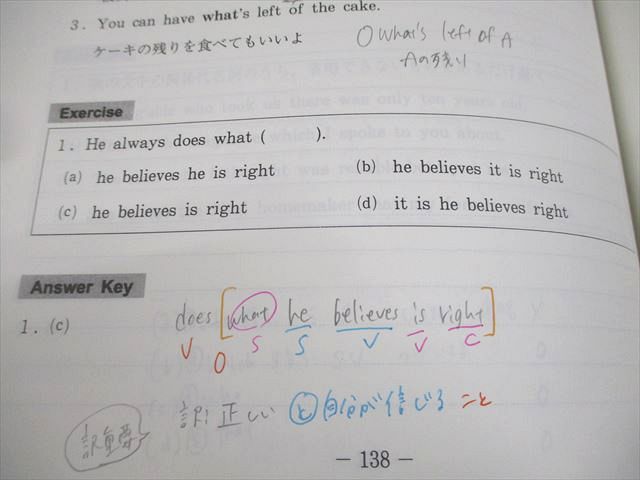 3. You can have what's left of the cake.
ケーキの残りを食べてもいいよ
○ what's left of A
Aの残り
Exercise
1. He always does what ( ).
(a) he believes he is right
(b) he believes it is right
(c) he believes is right
(d) it is he believes right
Answer Key
1. (c)
does [what he believes is right]
V O S S V V C
訳: 正しい と 自分が信じる こと
訳重要
- 138 -